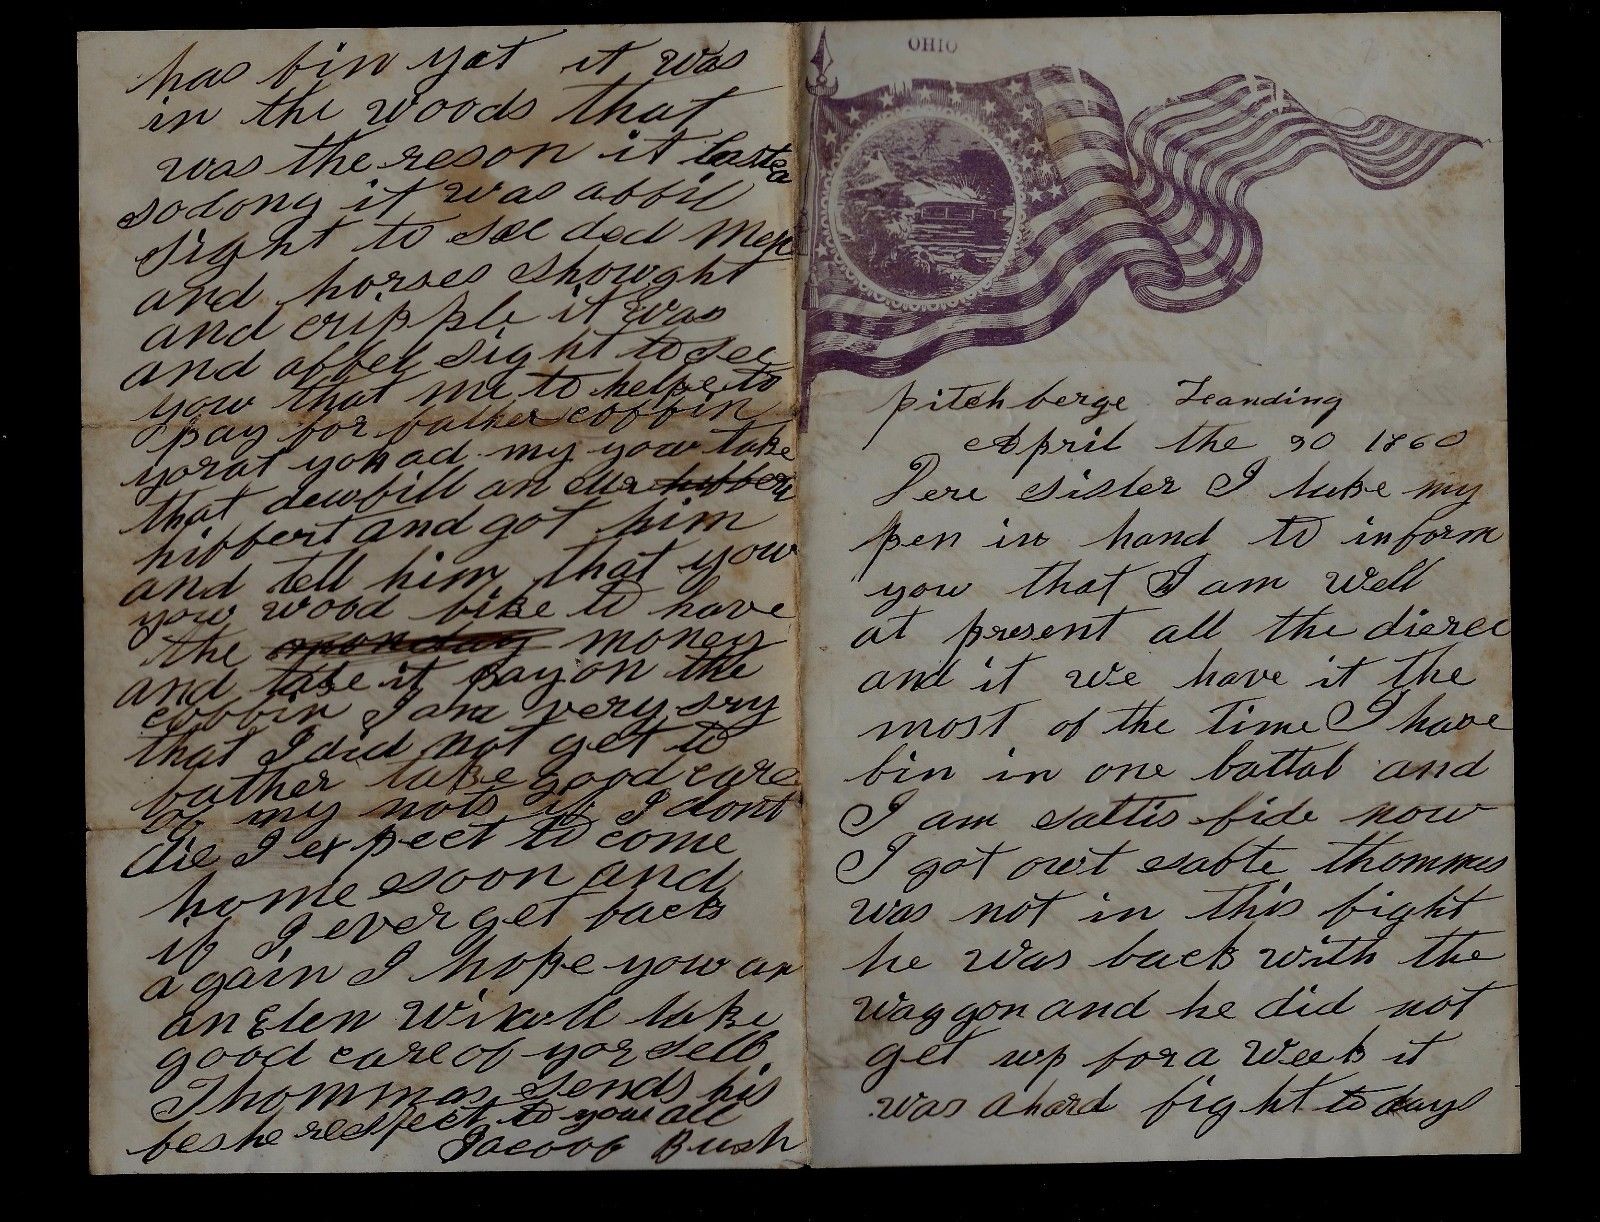 OHIO
pitchberge Leanding
April the 30 1860
Dere sister I take my
pen in hand to inform
you that I am well
at present all the dieree
and it we have it the
most of the time I have
bin in one battal and
I am sattis fide now
I got owt sabte thommas
was not in this fight
he was back with the
waggon and he did not
get up for a week it
was a hard fight to days
has bin yat it was
in the woods that
was the reson it lasted
so long it was affil
sight to see ded men
and horses showght
and cripple it was
and affel sight to see
yow that me to helpe to
pay for father coffin
yorat yo had my yow take
that dewbill an
hibbert and got him
and tell him that you
yow wood like to have
the money
and take it pay on the
coffin I am very sry
that I did not get to
father take good care
of my nots if I dont
die I expect to come
home soon and
if I ever get back
again I hope yow an
an Elen take
good care of yor self
Thommas sends his
beshe resfect to your all
Jacoob Bush